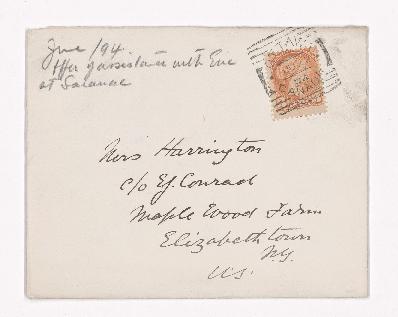 June /94
Offer of assistance with Eric
at Saranac
Mrs Harrington
c/o E.J. Conrad
Maple Wood Farm
Elizabethtown
N.Y.
U.S.